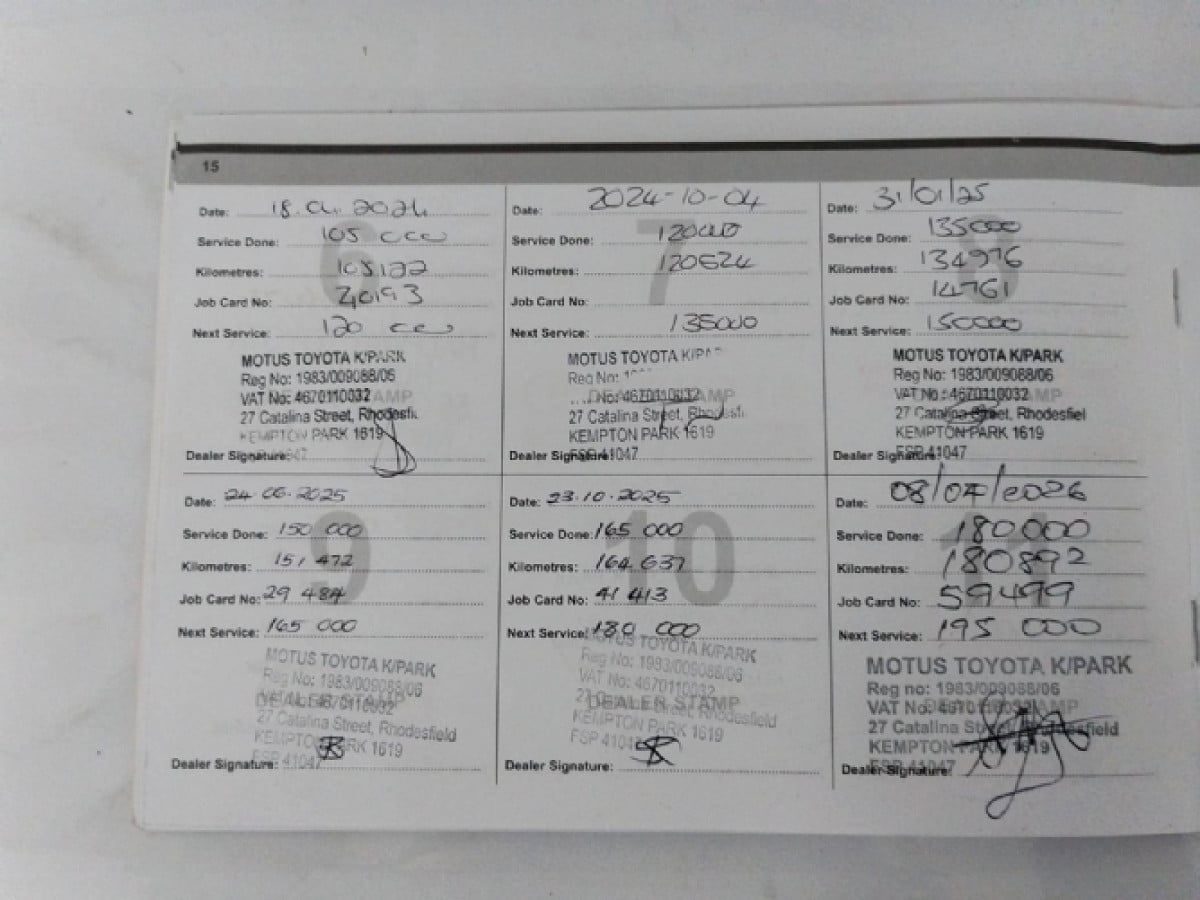 15
Date: 18.01.2024
Service Done: 105 000
Kilometres: 105122
Job Card No: 40193
Next Service: 120 000
MOTUS TOYOTA K/PARK
Reg No: 1983/009088/06
VAT No: 4670110032
27 Catalina Street, Rhodesfi
KEMPTON PARK 1619
Dealer Signature:
6
Date: 2024-10-04
Service Done: 120000
Kilometres: 120624
Job Card No:
Next Service: 135000
MOTUS TOYOTA K/PA
Reg No: 1
No: 4670110032
27 Catalina Street, Rhodesfi
KEMPTON PARK 1619
FSP 41047
Dealer Signature:
7
Date: 31/01/25
Service Done: 135000
Kilometres: 134976
Job Card No: 14761
Next Service: 150000
MOTUS TOYOTA K/PARK
Reg No: 1983/009088/06
VAT No: 4670110032
27 Catalina Street, Rhodesfiel
KEMPTON PARK 1619
FSP 41047
Dealer Signature:
8
Date: 24.06.2025
Service Done: 150 000
Kilometres: 151 472
Job Card No: 29 484
Next Service: 165 000
MOTUS TOYOTA K/PARK
Reg No: 1983/009088/06
VAT No: 4670110032
DEALER STAMP
27 Catalina Street, Rhodesfield
KEMPTON PARK 1619
FSP 41047
Dealer Signature:
9
Date: 23.10.2025
Service Done: 165 000
Kilometres: 164 637
Job Card No: 41 413
Next Service: 180 000
MOTUS TOYOTA K/PARK
Reg No: 1983/009088/06
VAT No: 4670110032
DEALER STAMP
27 Catalina Street, Rhodesfield
KEMPTON PARK 1619
FSP 41047
Dealer Signature:
10
Date: 08/04/2026
Service Done: 180000
Kilometres: 180892
Job Card No: 59499
Next Service: 195 000
MOTUS TOYOTA K/PARK
Reg no: 1983/009088/06
VAT No: 4670110032
27 Catalina Street, Rhodesfield
KEMPTON PARK 1619
FSP 41047
Dealer Signature:
11